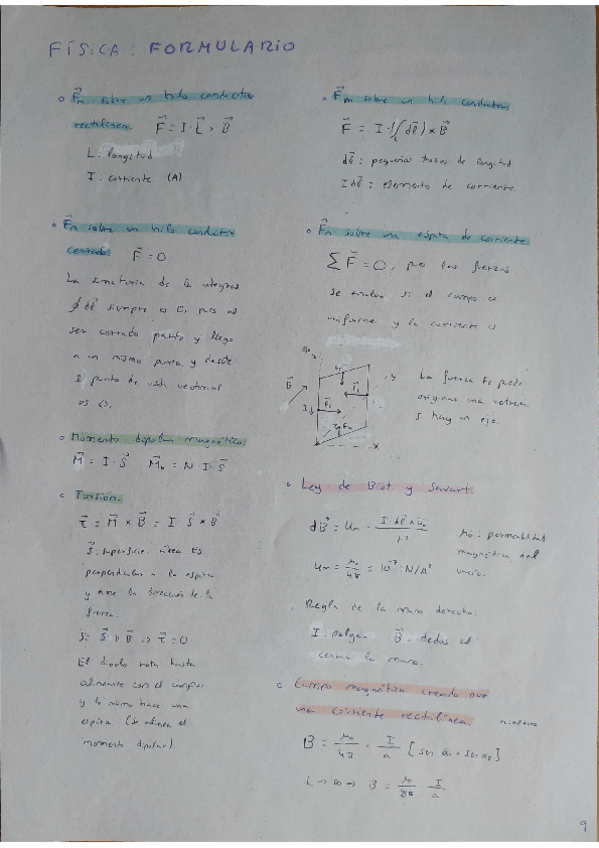 FÍSICA: FORMULARIO
F⃗m sobre un hilo conductor
rectilíneo. F⃗ = I · L⃗ × B⃗
L: longitud
I: corriente (A)
F⃗m sobre un hilo conductor
cerrado F⃗ = 0
La sumatoria de la integral
∮ dl⃗ siempre es 0, pues al
ser cerrado punto y llego
a un mismo punto y desde
el punto de vista vectorial
es 0.
Momento dipolar magnético:
M⃗ = I · S⃗ M⃗n = N · I · S⃗
Torsión.
τ⃗ = M⃗ × B⃗ = I · S⃗ × B⃗
S⃗: superficie
perpendicular a la espira
y tiene la dirección de la
fuerza.
Si S⃗ ∥ B⃗ => τ⃗ = 0
El dipolo rota hasta
alinearse con el campo
y lo mismo hace una
espira (se alinea el
momento dipolar).
F⃗m sobre un hilo conductor
F⃗ = I · (∫L dl⃗) × B⃗
dl⃗: pequeños trozos de longitud
I dl⃗: elemento de corriente
F⃗m sobre una espira de corriente
∑ F⃗ = 0, pues las fuerzas
se anulan si el campo es
uniforme y la corriente es
B⃗
I↓
F⃗1
La fuerza F2 puede
originar una
si hay un eje.
Ley de Biot y Savart.
dB⃗ = um · I · dl⃗ × u⃗r / r²
μ0: permeabilidad
magnética del
vacío.
um = μ0/4π = 10⁻⁷ N/A²
Regla de la mano derecha:
I: pulgar B⃗: dedos al
cerrar la mano.
Campo magnético creado por
una corriente rectilínea.
B = μ0/4π · I/a [sen α1 + sen α2]
L → ∞ → B = μ0/2π · I/a
9